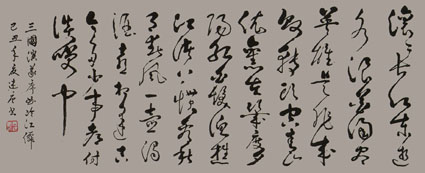 滚〻长江东逝
水浪花淘尽
英雄是非成
败转头空青山
依旧在几度夕
阳红白发渔樵
江渚上惯看秋
月春风一壶浊
酒喜相逢古
今多少事都付
谈笑中
三國演義序曲临江仙
己丑年夏